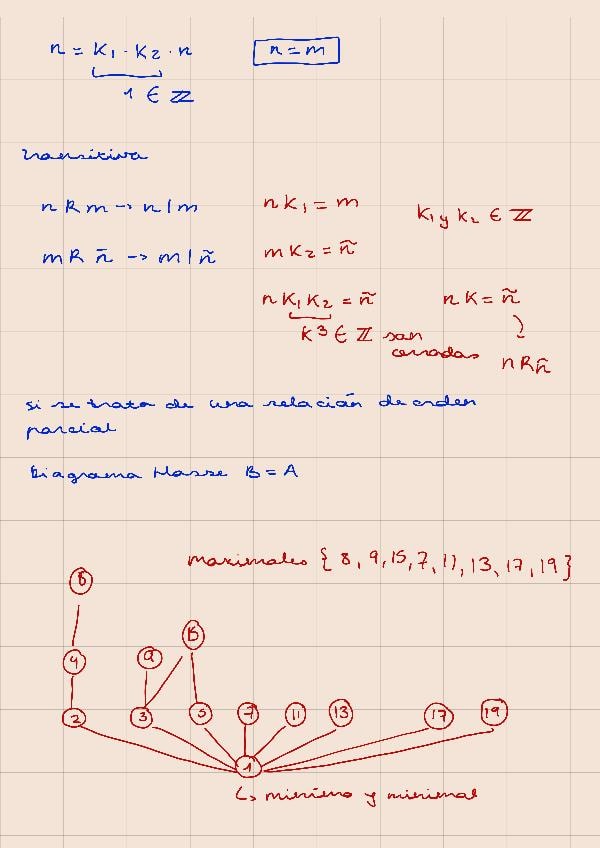 n = K₁ · K₂ · n
n = m
1 ∈ ℤ
transitiva
n R m → n | m
n K₁ = m
K₁ y K₂ ∈ ℤ
m R ñ → m | ñ
m K₂ = ñ
n K₁ K₂ = ñ
n K = ñ
K³ ∈ ℤ son
cerradas
n R ñ
si se trata de una relación de orden
parcial
Diagrama Hasse B = A
maximales { 8, 9, 15, 7, 11, 13, 17, 19 }
8
15
4
9
2
3
5
7
11
13
17
19
1
↳ mínimo y minimal